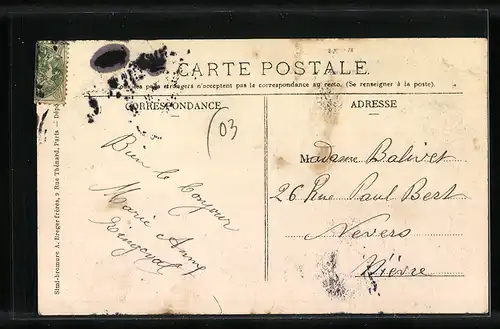 CARTE POSTALE.
pays étrangers n'acceptent pas la correspondance au recto. (Se renseigner à la poste).
CORRESPONDANCE
ADRESSE
03
Bien le bonjour
Marie Anne
Madame Balivet
26 Rue Paul Bert
Nevers
Nièvre
Simi-bromure A. Breger frères, 9 Rue Thénard, Paris.